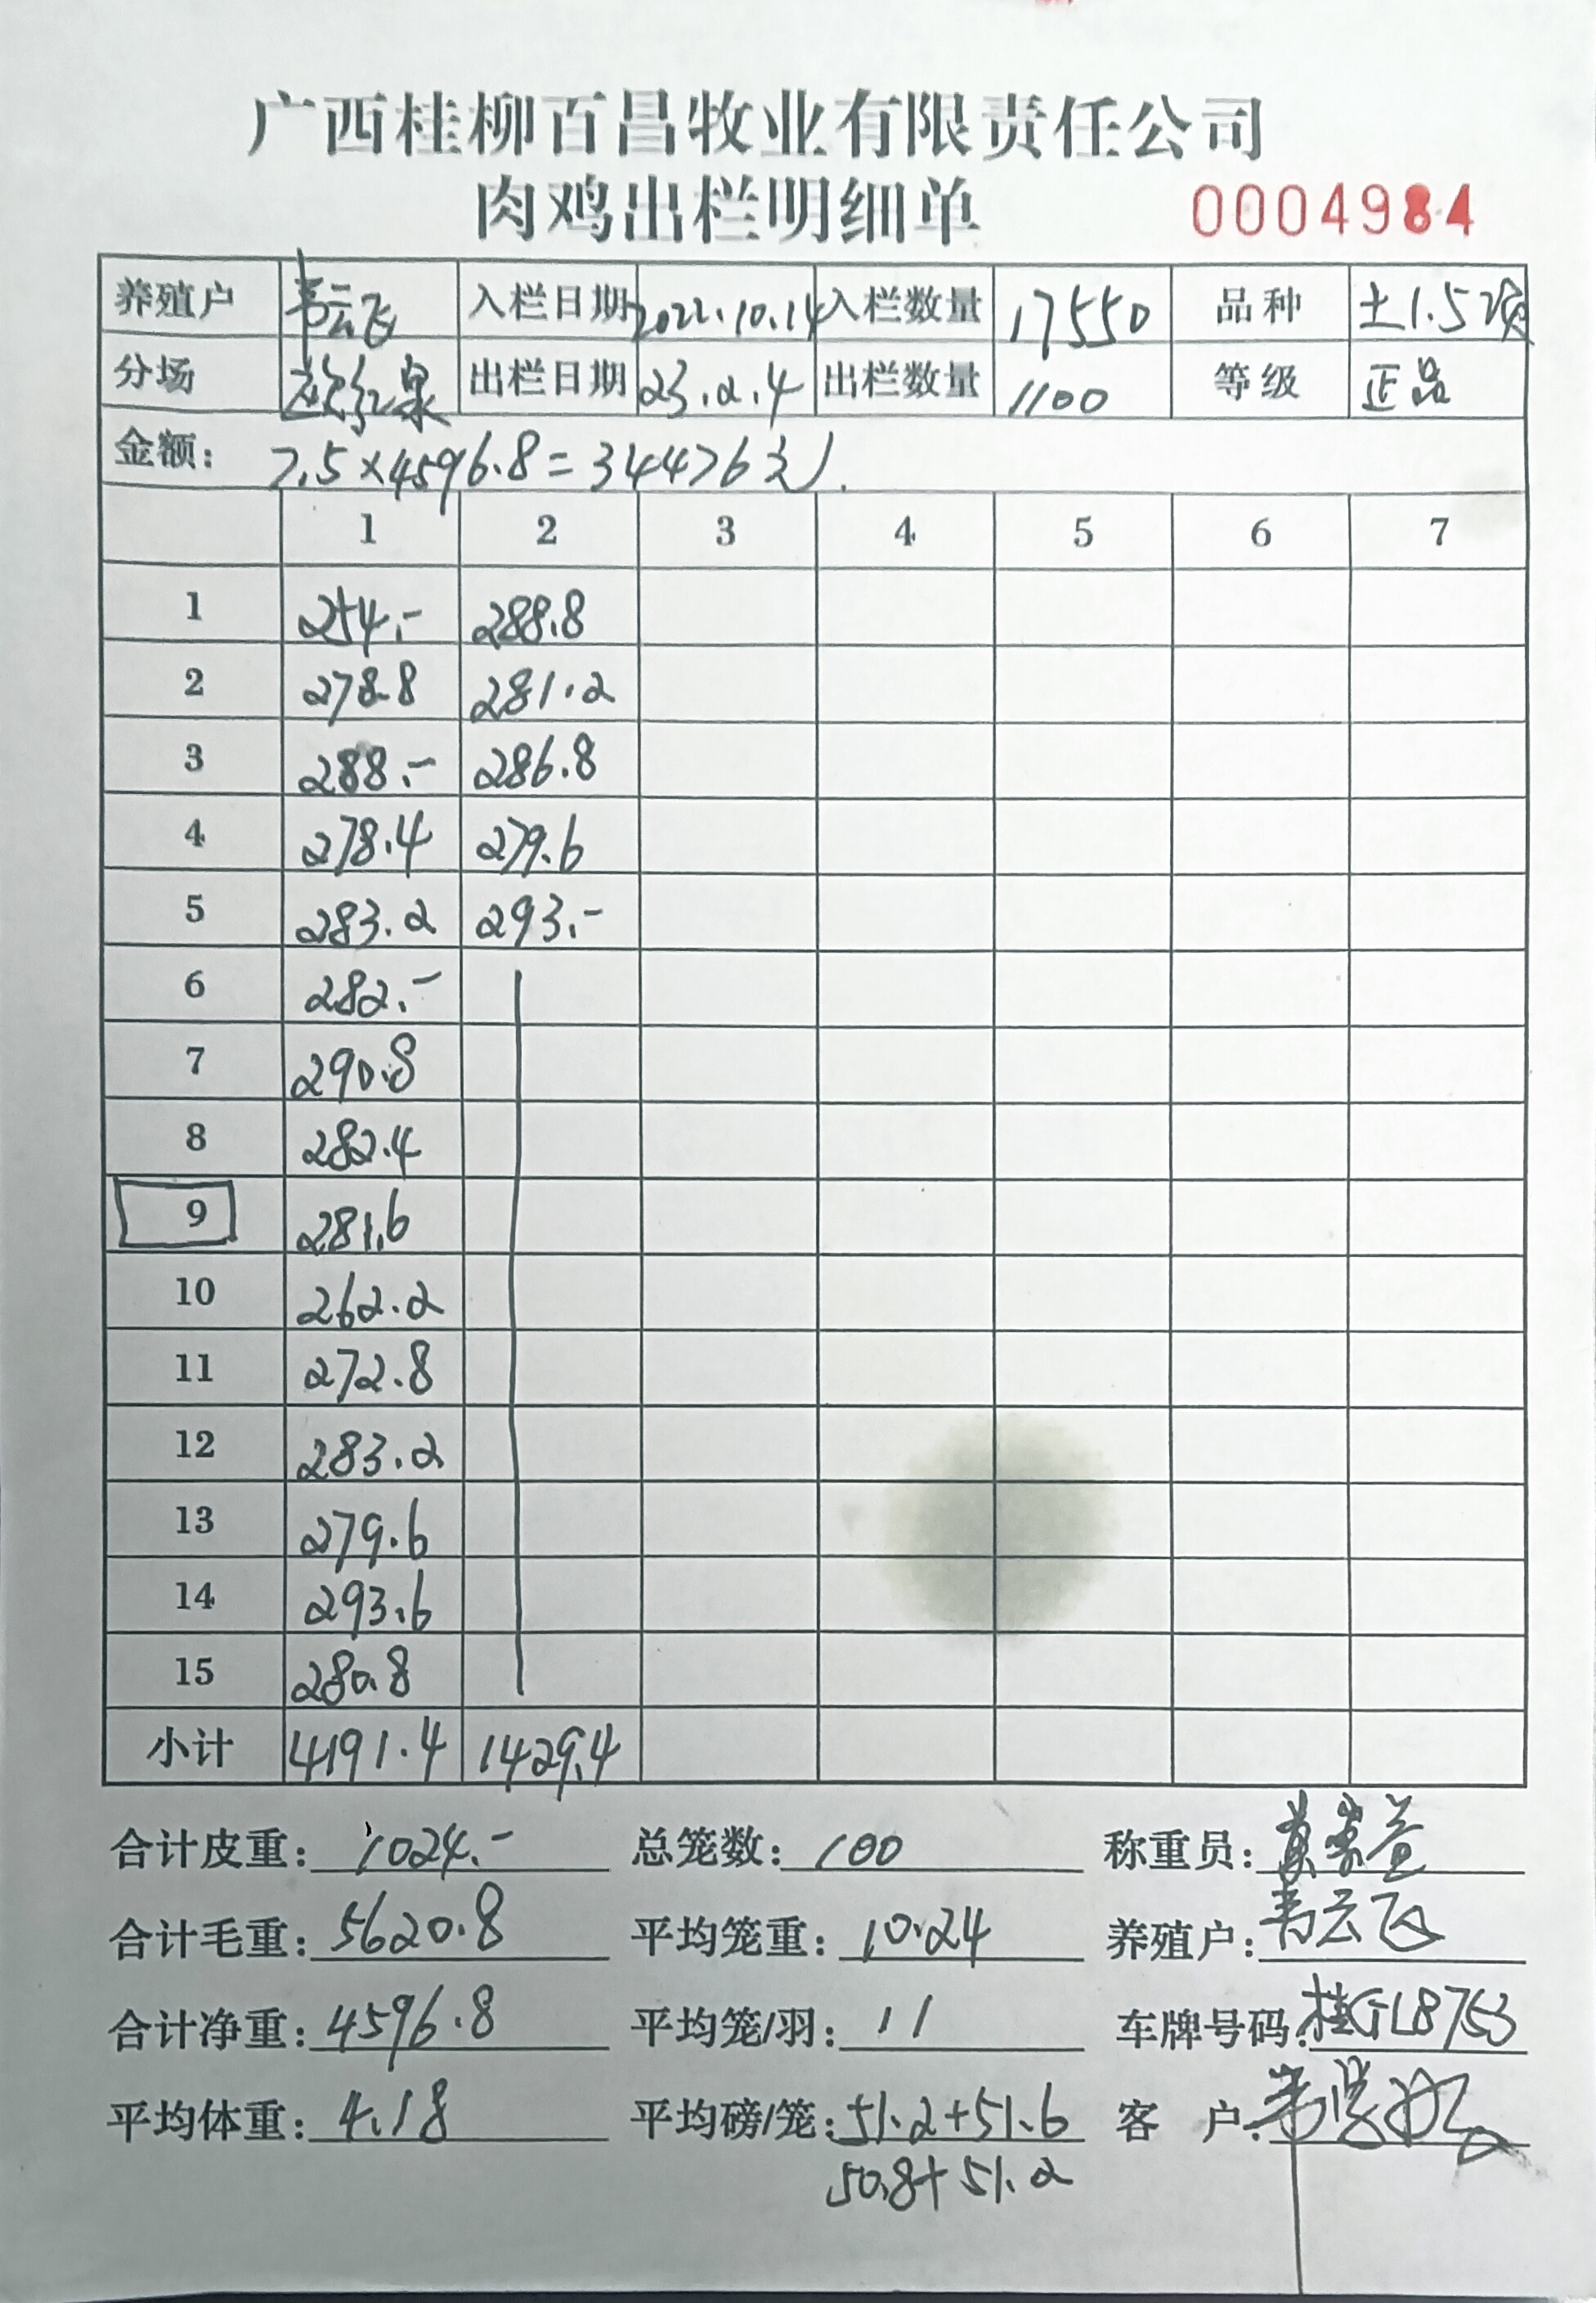 广西桂柳百昌牧业有限责任公司
肉鸡出栏明细单 0004984
养殖户 韦云飞 入栏日期 2022.10.14 入栏数量 17550 品种 土1.5项
分场 出栏日期 23.2.4 出栏数量 1100 等级 正品
金额: 7.5×4596.8=34476元
1 2 3 4 5 6 7
1 254.- 288.8
2 278.8 281.2
3 288.- 286.8
4 278.4 279.6
5 283.2 293.-
6 282.-
7 290.8
8 282.4
9 281.6
10 262.2
11 272.8
12 283.2
13 279.6
14 293.6
15 280.8
小计 4191.4 1429.4
合计皮重: 1024.- 总笼数: 100 称重员:
合计毛重: 5620.8 平均笼重: 10.24 养殖户: 韦云飞
合计净重: 4596.8 平均笼/羽: 11 车牌号码: 桂GL8753
平均体重: 4.18 平均磅/笼: 51.2+51.6 客 户:
50.8+51.2